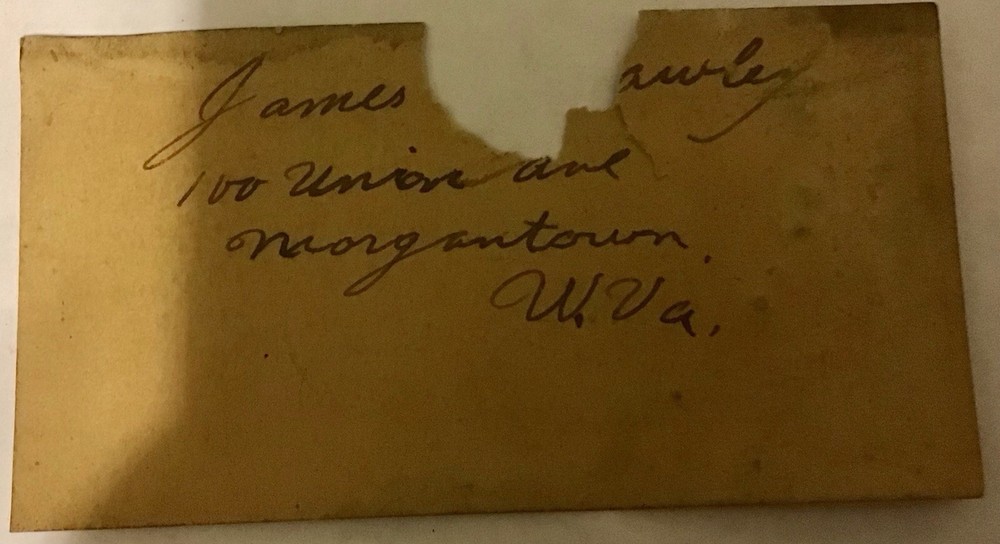 James awley
100 Union ave
Morgantown.
W. Va.